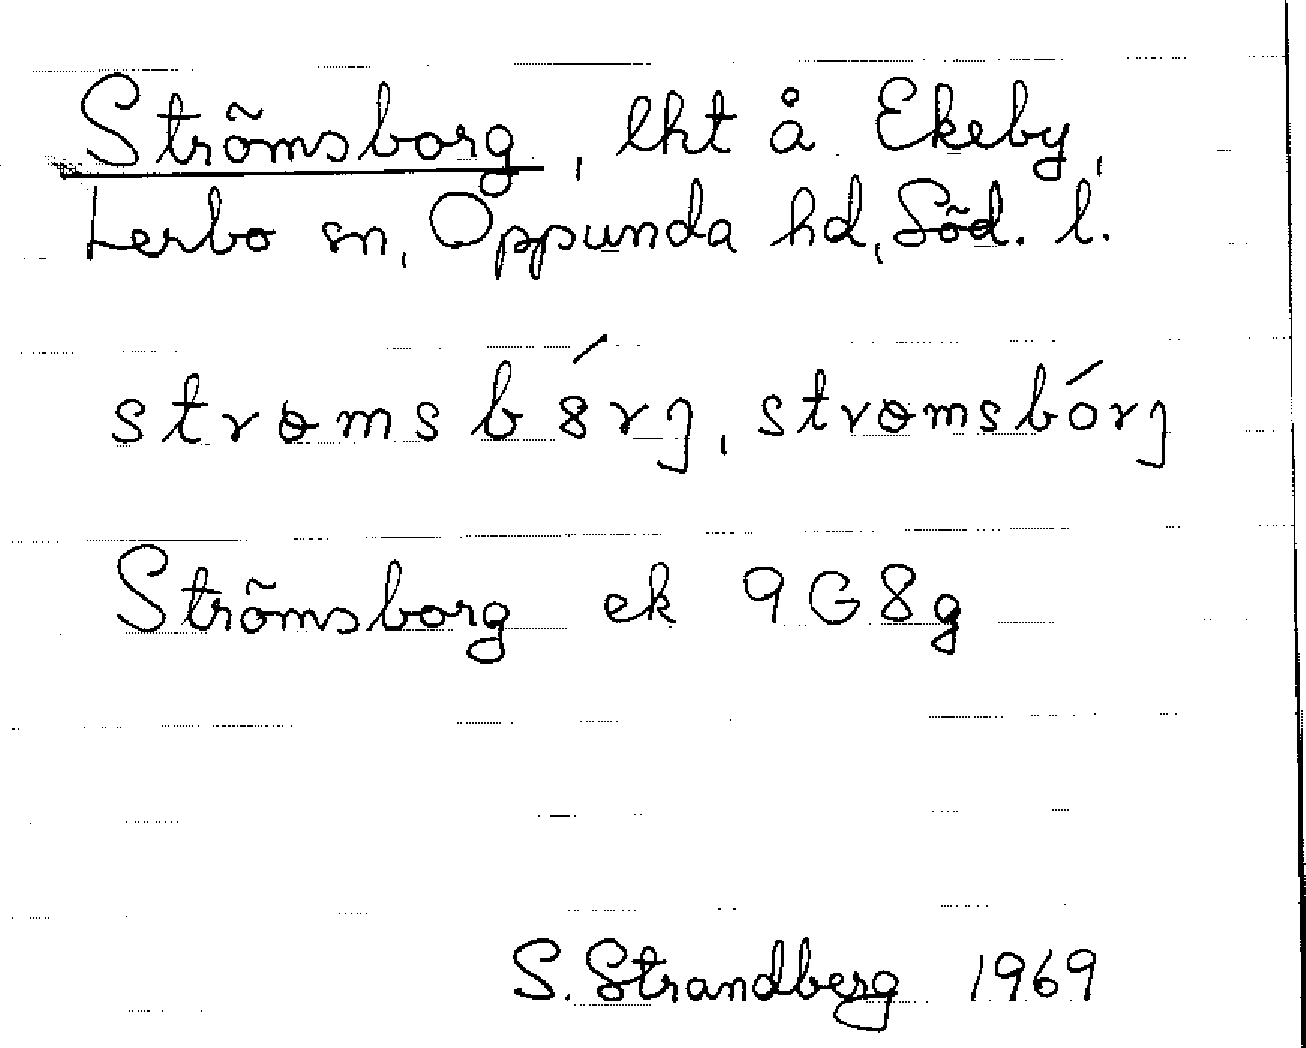 Strömsborg, lht å Ekeby,
Lerbo sn, Oppunda hd, Söd. l.
strømsb8́rȷ, strømsbórȷ
Strömsborg ek 9G8g
S. Strandberg 1969